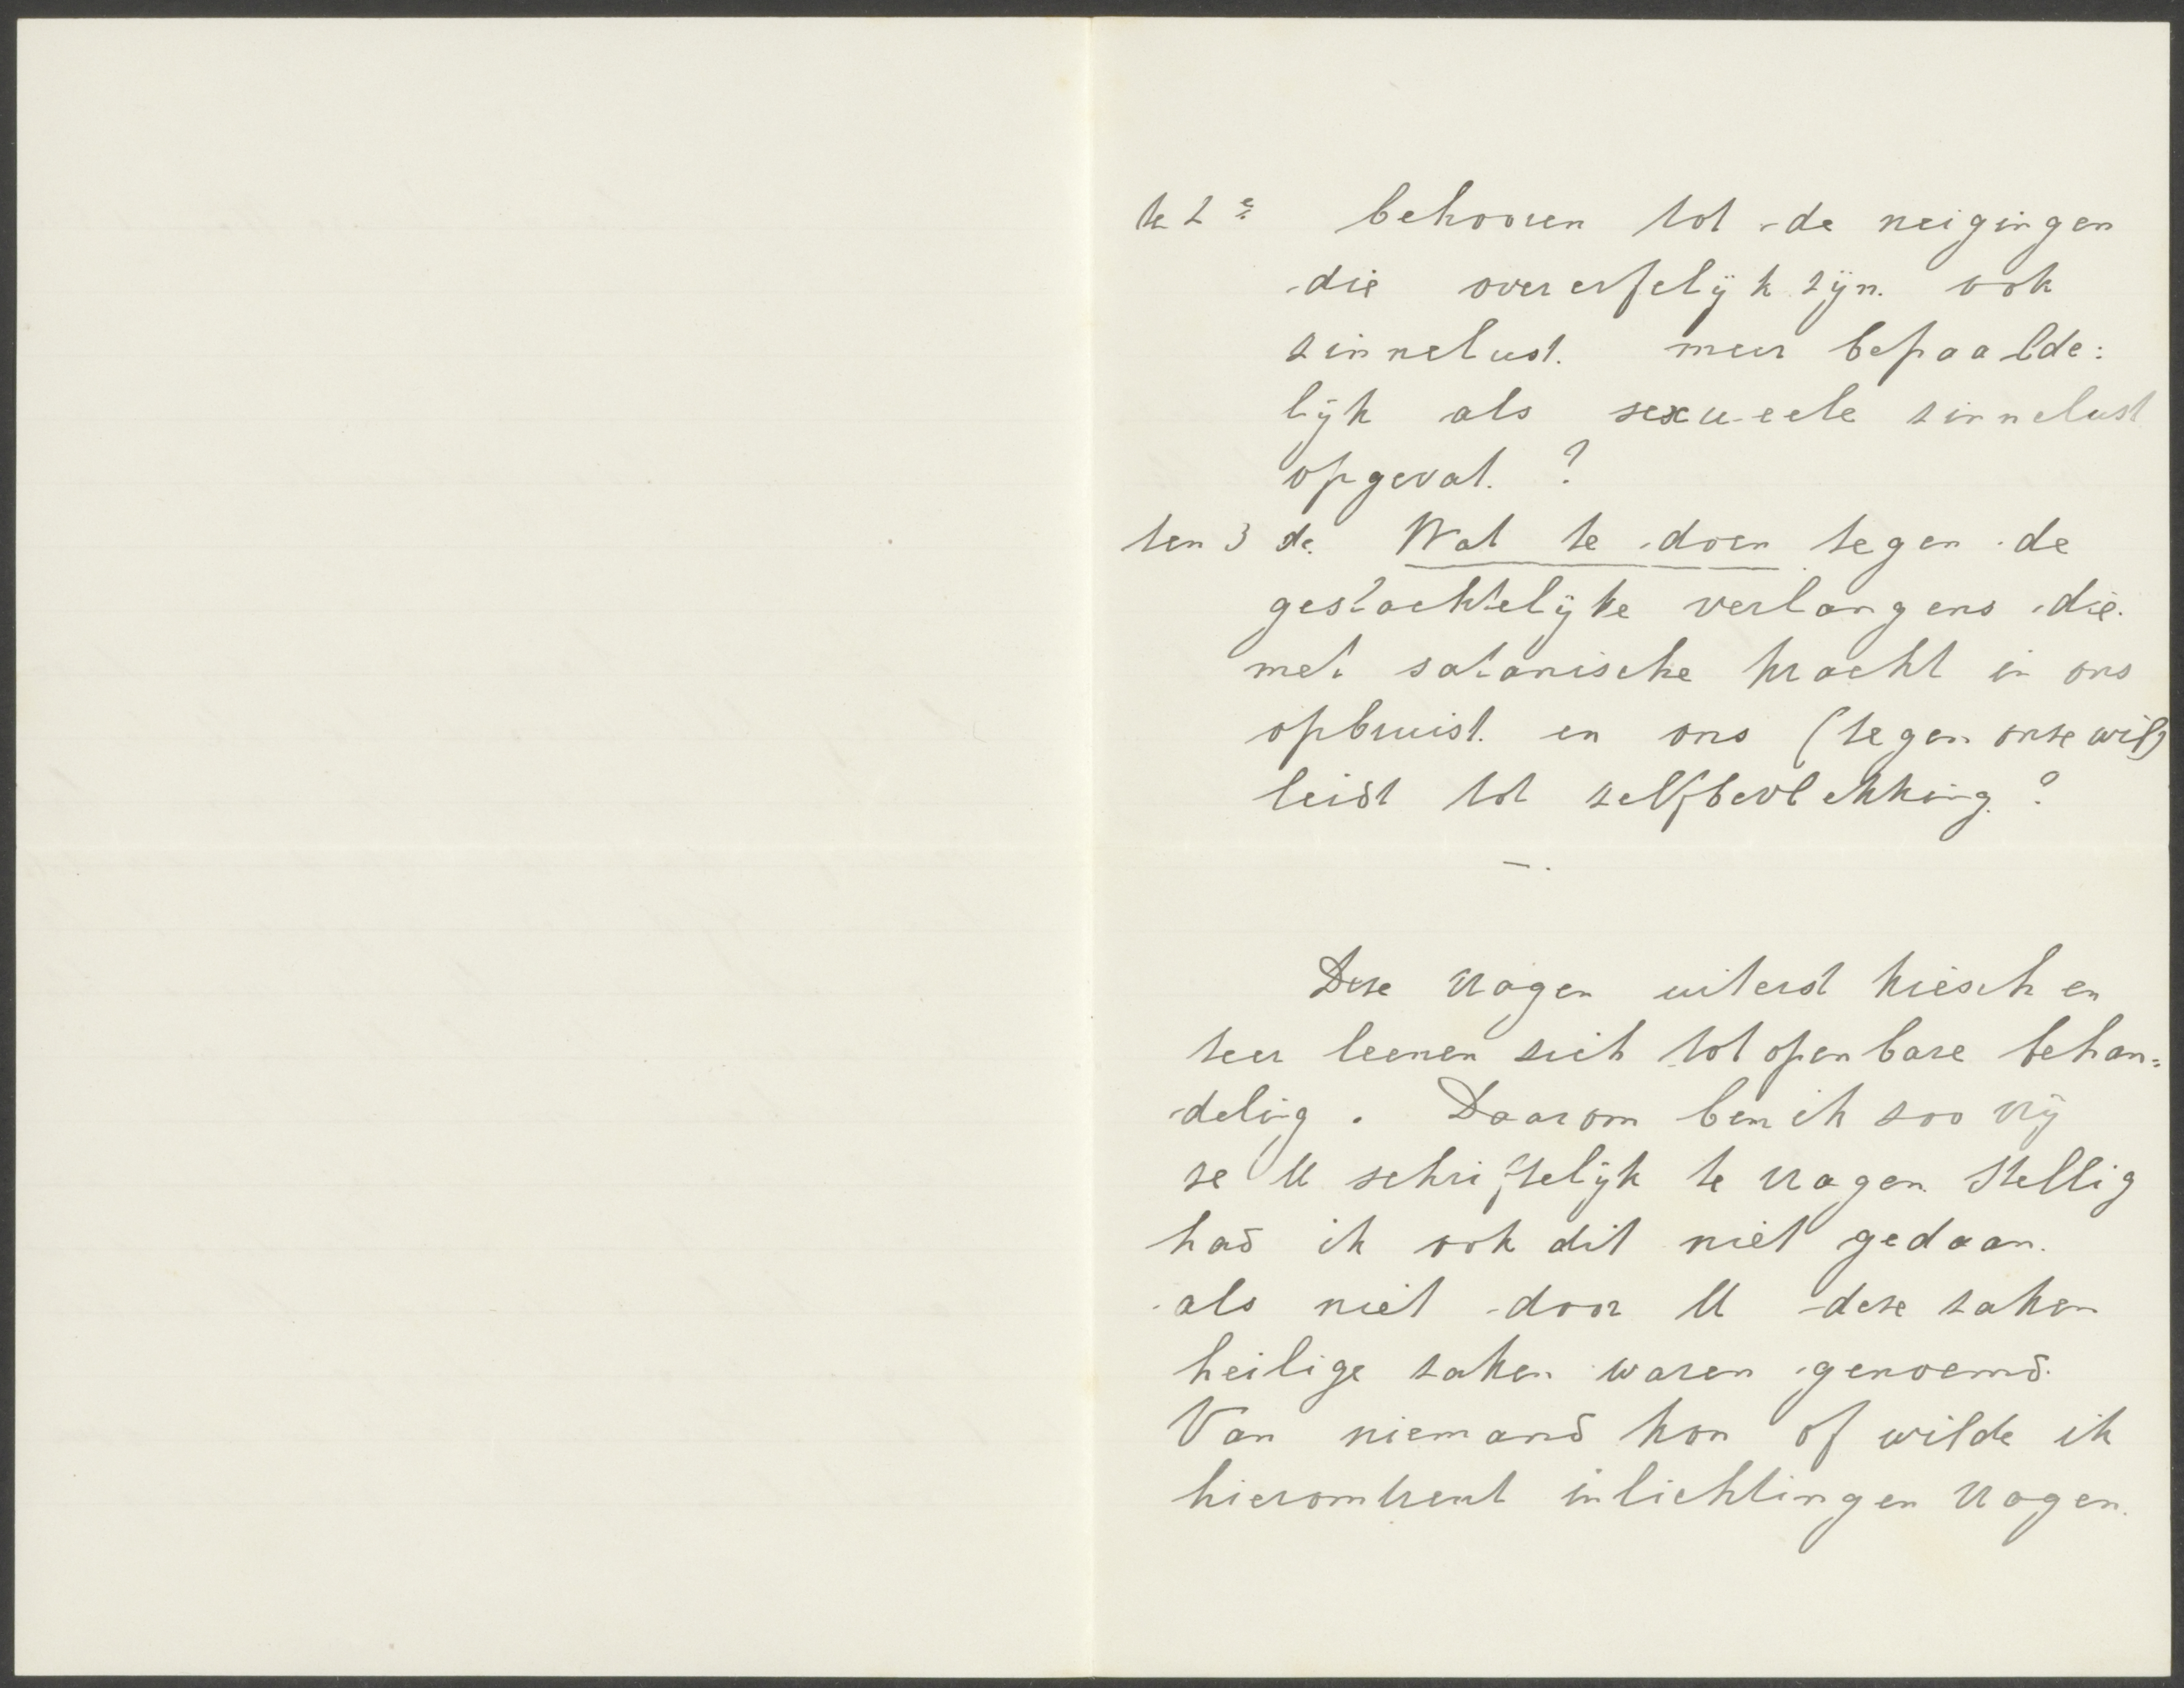 te 2e behooren tot de neigingen
die overerfelijk zijn. ook
zinnelust. meer bepaalde:
lijk als sexueele zinnelust
opgevat. ?
ten 3 de. Wat te doen tegen de
geslachtelijke verlangens die
met satanische kracht in ons
opbruist. en ons (tegen onze wil)
leidt tot zelfbevlekking. ?
—.
Deze vragen uiterst kiesch en
teer leenen zich tot openbare behan=
deling. Daarom ben ik zoo vrij
ze U schriftelijk te vragen. Stellig
had ik ook dit niet gedaan.
als niet door U deze zaken
heilige zaken waren genoemd.
Van niemand kon of wilde ik
hieromtrent inlichtingen vragen.